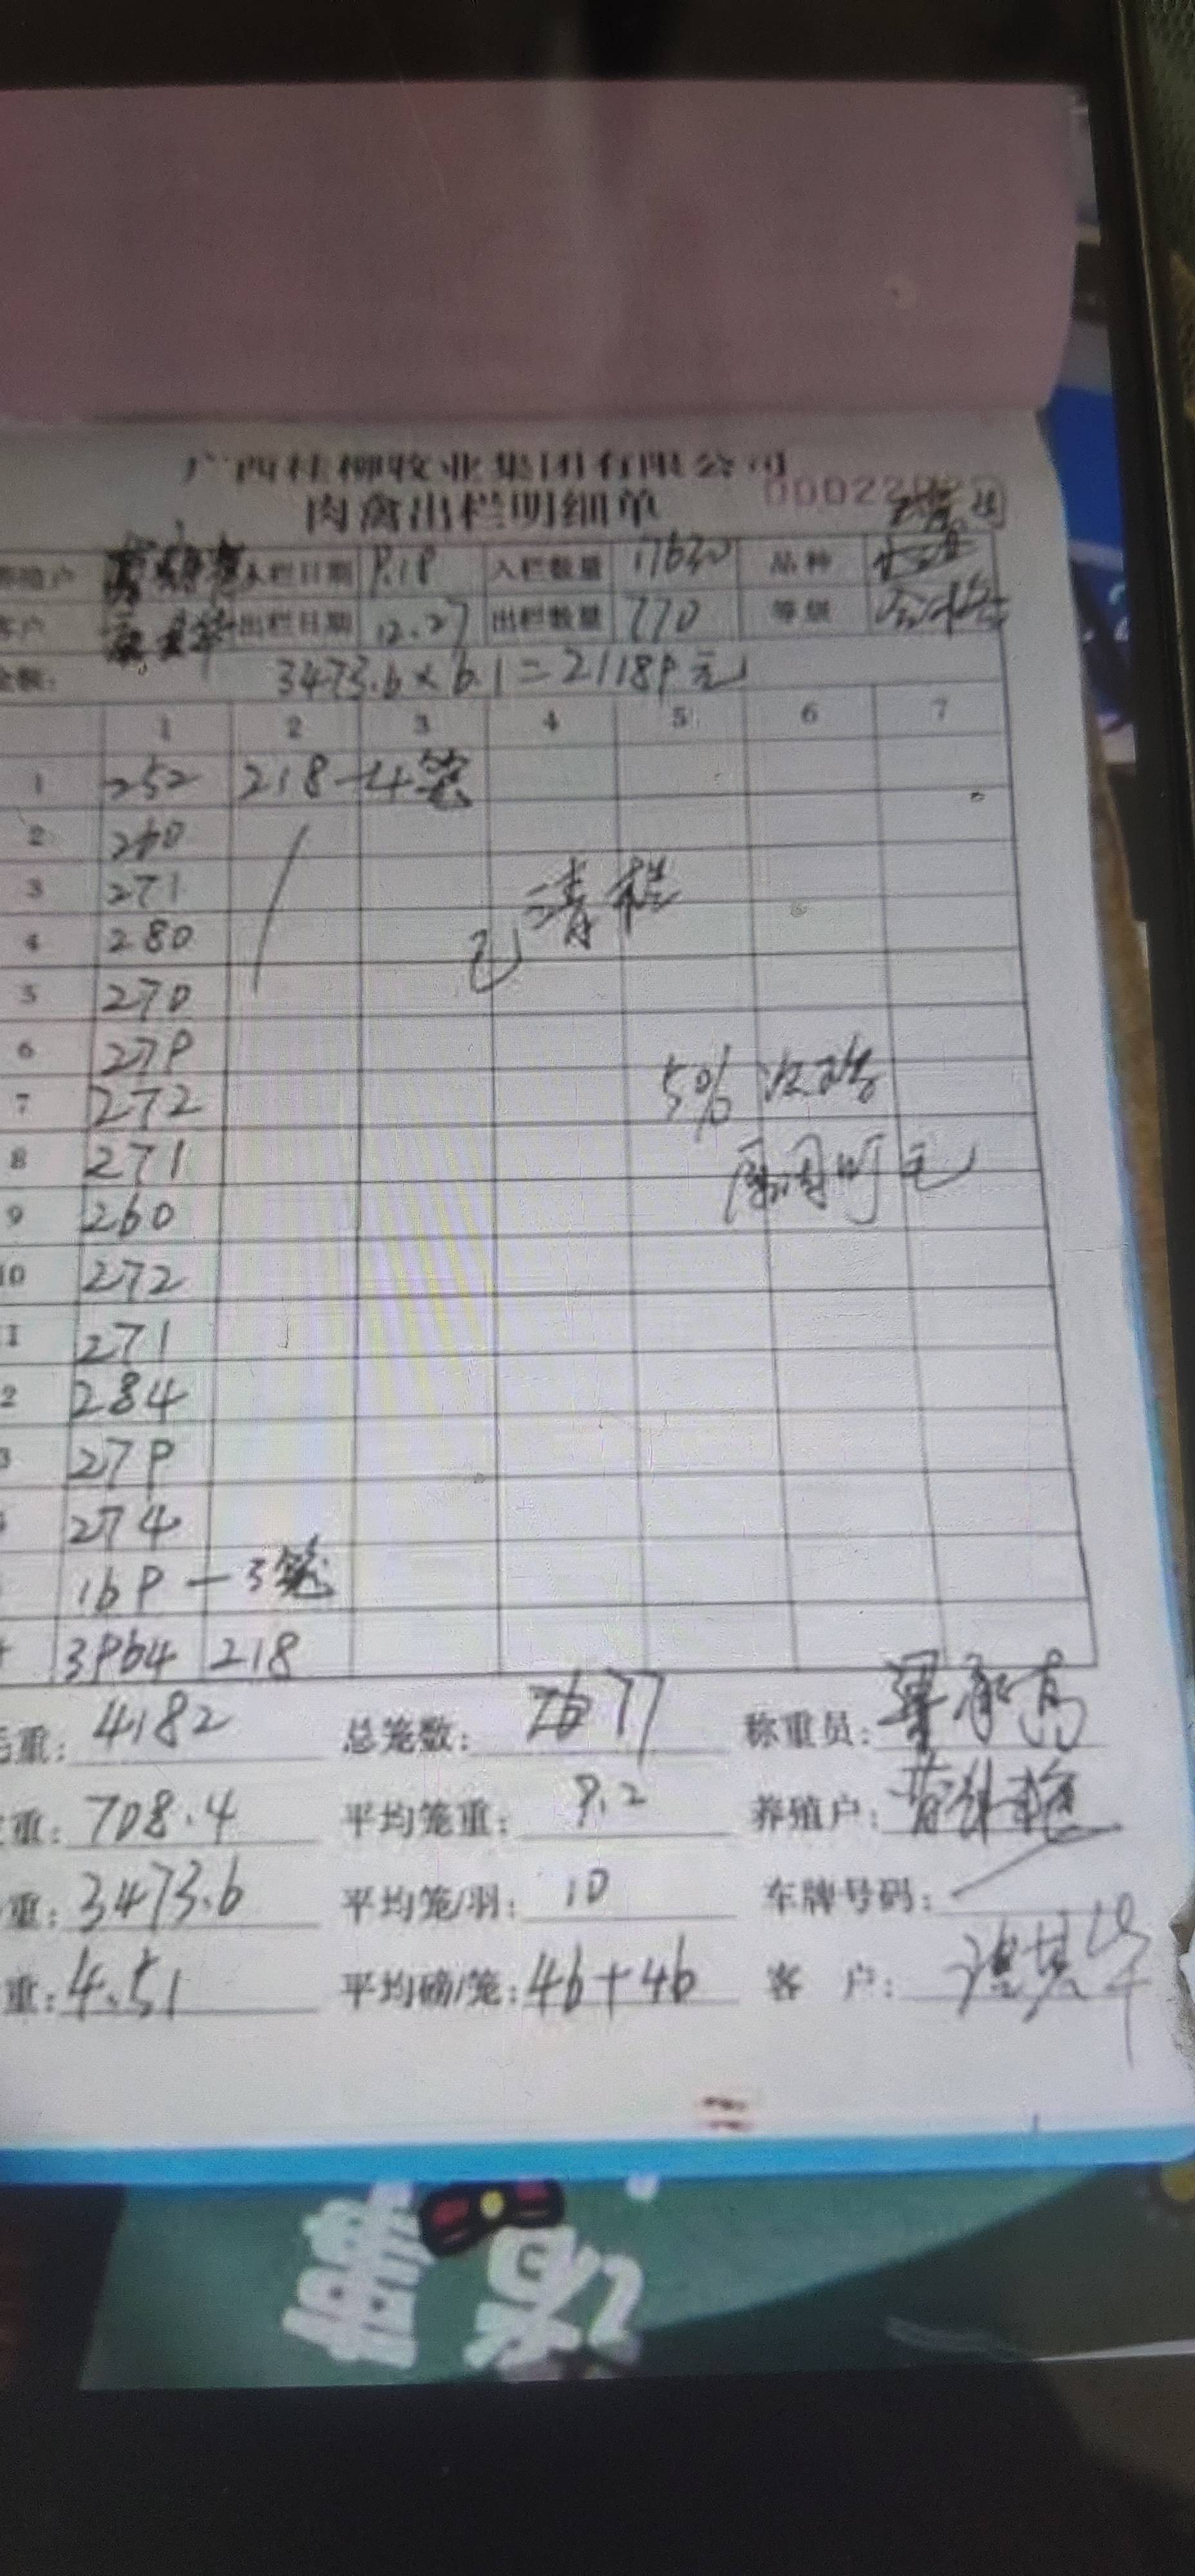 广西桂柳牧业集团有限公司
肉禽出栏明细单 00022
养殖户 入栏日期 9.18 入栏数量 17630 品种
客户 出栏日期 12.27 出栏数量 770 等级 合格
金额: 3473.6×6.1=21189元
1 2 3 4 5 6 7
1 252 218-4笼
2 260
3 271
4 280
5 270
6 279
7 272
8 271
9 260
10 272
11 271
12 284
13 279
14 274
169-3笼
3964 218
已清栏
5% 次鸡
原因:町毛
毛重: 4182 总笼数: 77 称重员:
重: 708.4 平均笼重: 9.2 养殖户:
重: 3473.6 平均笼/羽: 10 车牌号码:
重: 4.51 平均磅/笼: 4b+4b 客 户: